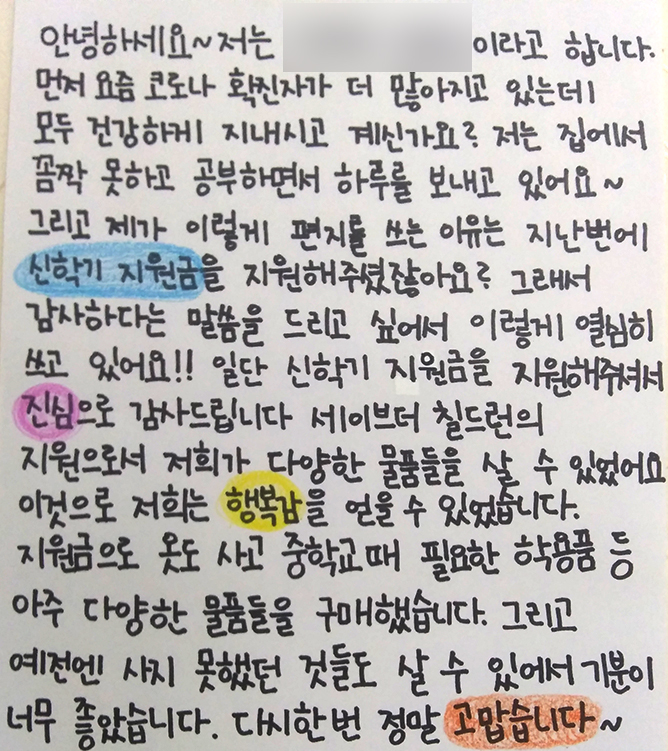 안녕하세요~ 저는 이라고 합니다.
먼저 요즘 코로나 확진자가 더 많아지고 있는데
모두 건강하게 지내시고 계신가요? 저는 집에서
꼼짝 못하고 공부하면서 하루를 보내고 있어요~
그리고 제가 이렇게 편지를 쓰는 이유는 지난번에
신학기 지원금을 지원해주셨잖아요? 그래서
감사하다는 말씀을 드리고 싶어서 이렇게 열심히
쓰고 있어요!! 일단 신학기 지원금을 지원해주셔서
진심으로 감사드립니다 세이브더 칠드런의
지원으로서 저희가 다양한 물품들을 살 수 있었어요
이것으로 저희는 행복감을 얻을 수 있었습니다.
지원금으로 옷도 사고 중학교때 필요한 학용품 등
아주 다양한 물품들을 구매했습니다. 그리고
예전엔 사지 못했던 것들도 살 수 있어서 기분이
너무 좋았습니다. 다시한번 정말 고맙습니다~